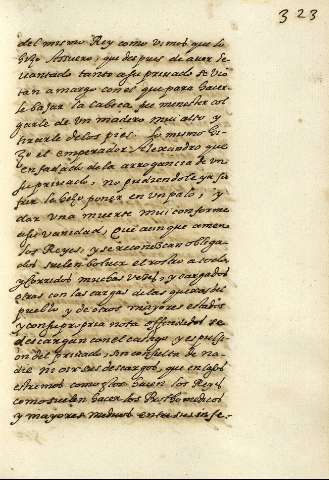 323
del mismo Rey como vimos que lo
hizo Asuero, que despues de aver le
vantado tanto a su privado se vio
tan amargo con el que para hacer
le bajar la cabeca, fue menester col
garle de un madero mui alto y
tirarle de los pies. Lo mismo hi
zo el emperador Alexandro que
enfadado de la arrogancia de un
su privado, no pudiendole ya su
frir lo hizo poner en un palo, y
dar una muerte mui conforme
a su vanidad, Que aunque amen
los Reyes, y se reconozcan obliga
dos suelen bolver el rostro a
y corridos muchas vezes, y cargados
otras con las cargas de las quexas del
pueblo y de otros mayores estados
y con su propria nota offendidos se
descargan con el castigo y espulsi
on del privado, sin consulta de na
die ni oirles descargos, que en tales
estremos como estos hacen los Reyes
como suelen hacer los Prothomedicos
y mayores medicos entre sus in fe-